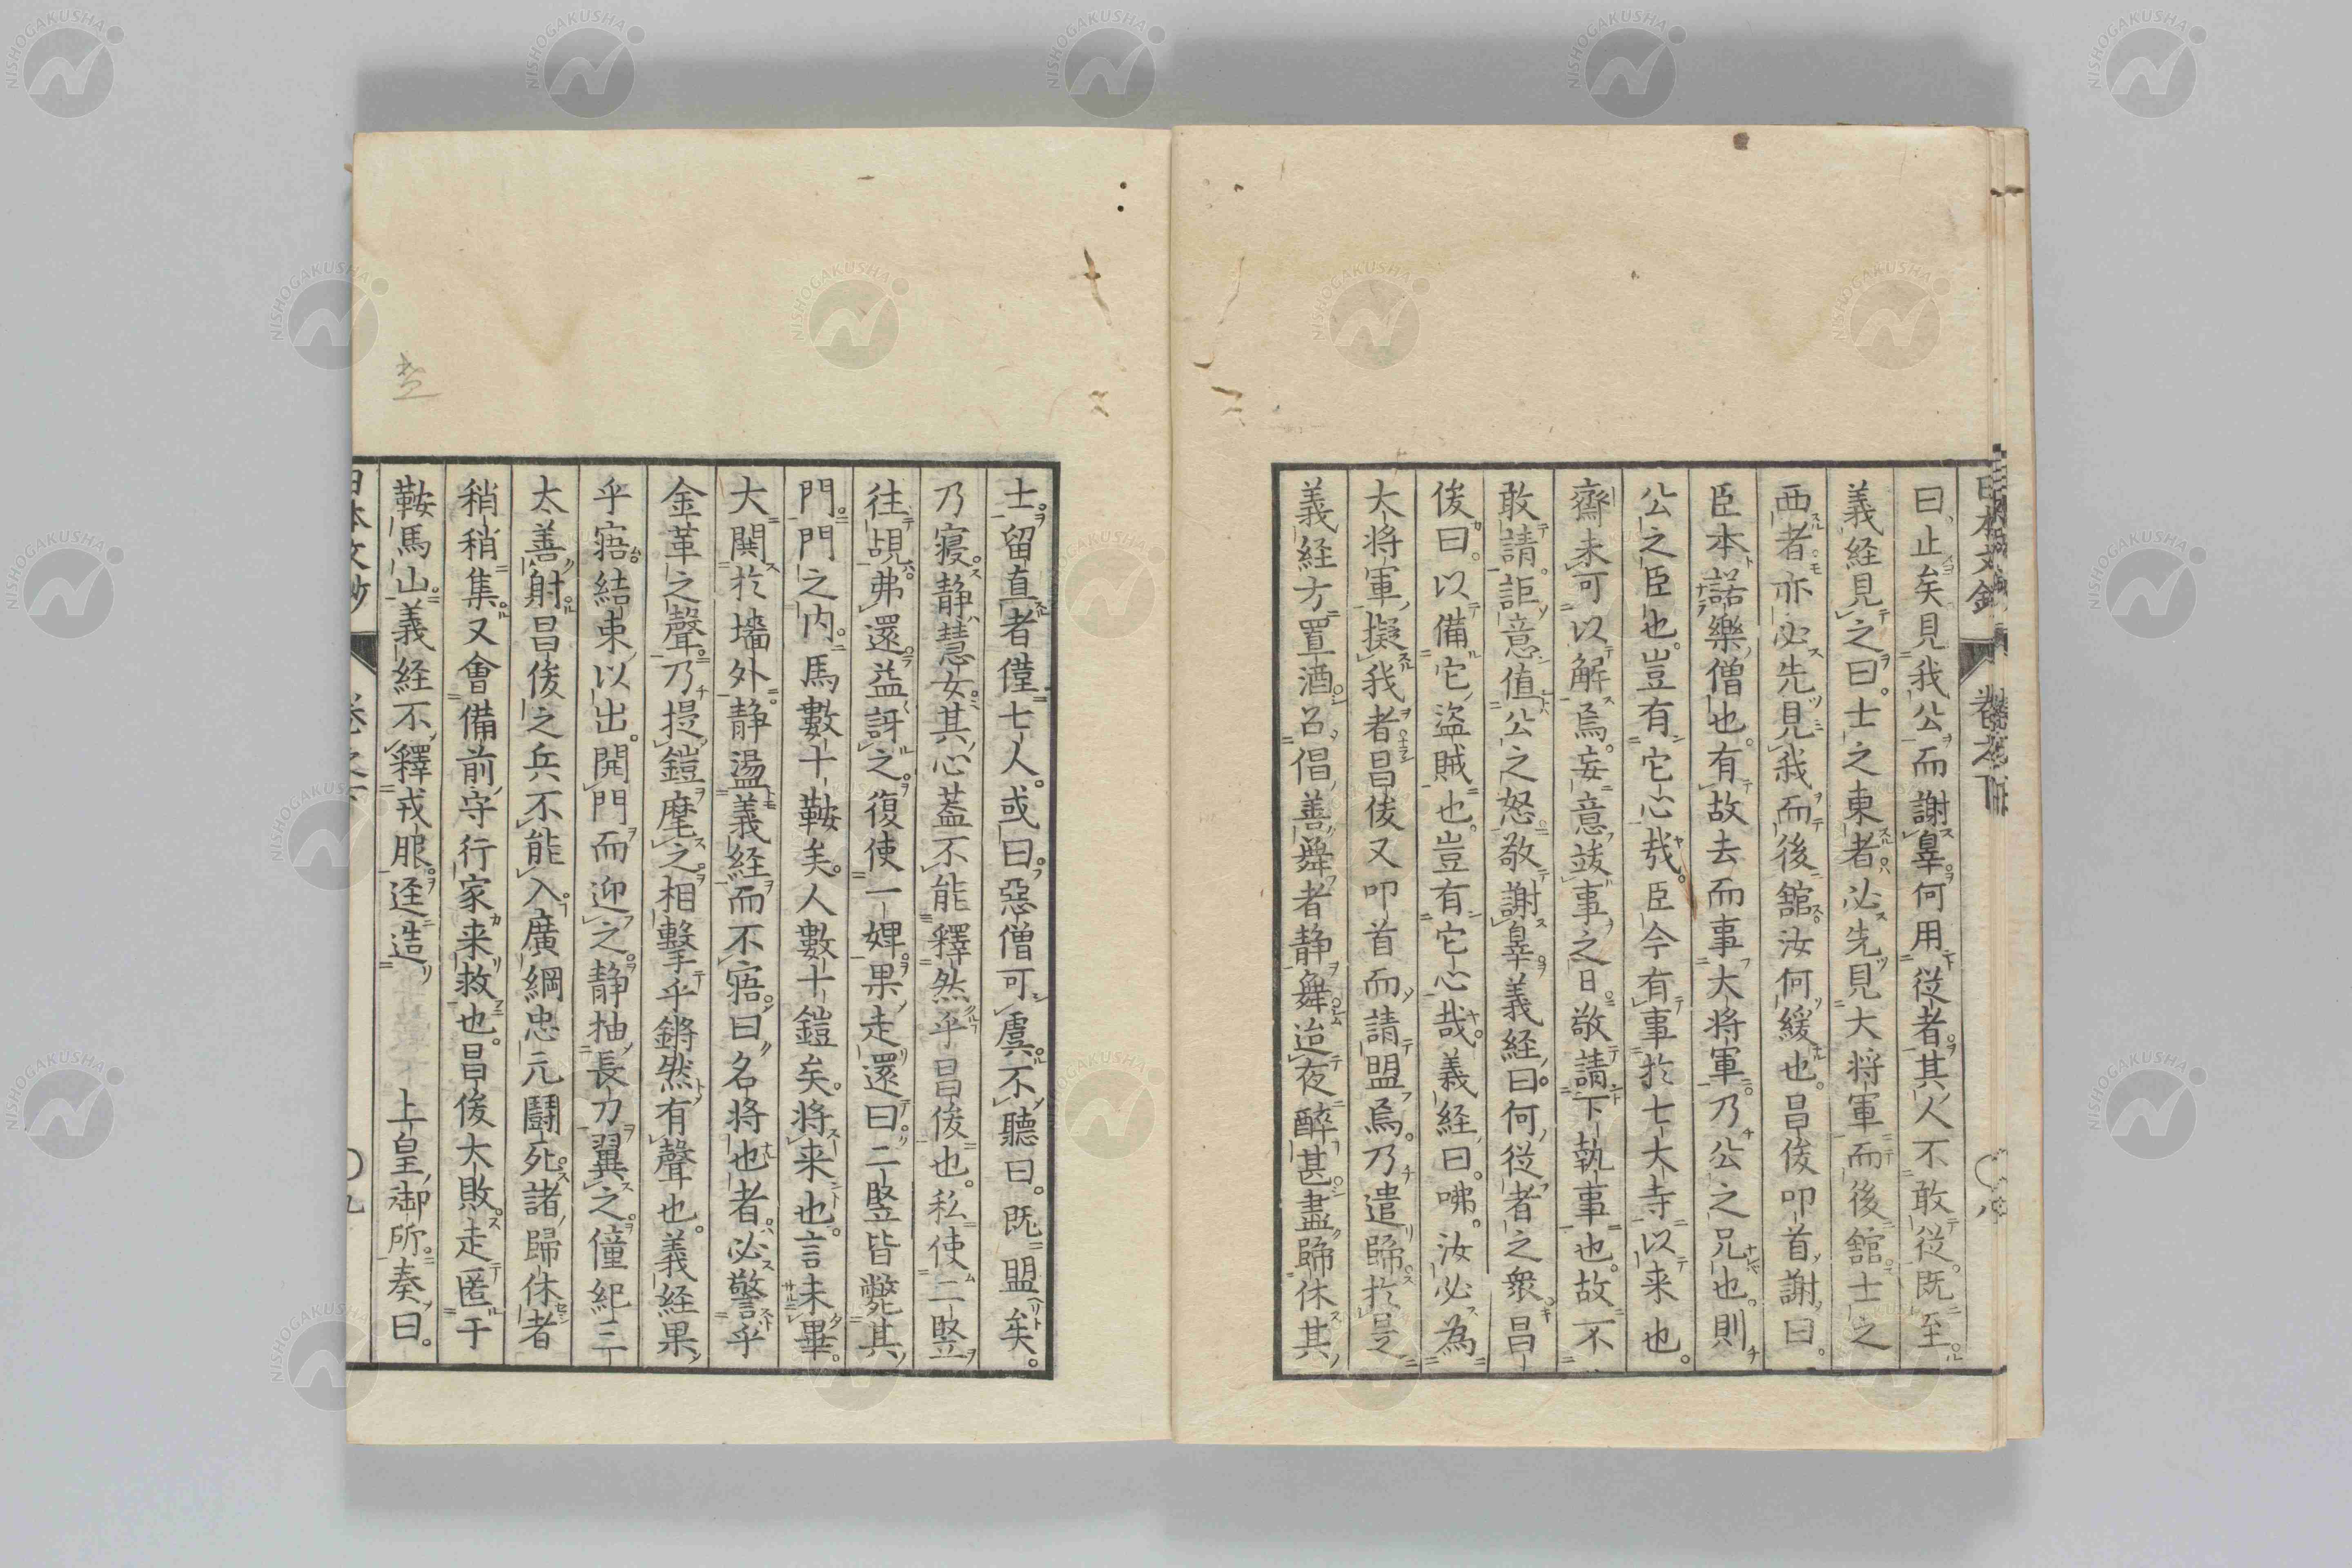 曰止矣見我公而謝辠何用從者其人不敢從既至
義経見之曰士之東者必先見大将軍而後舘士之
西者亦必先見我而後舘汝何緩也昌俊叩首謝曰
臣本諾樂僧也有故去而事大将軍乃公之兄也則
公之臣也豈有它心哉臣今有事於七大寺以来也
齋未可以解焉妄意竣事之日敬請下執事也故不
敢請詎意值公之怒敬謝辠義経曰何從者之衆昌
俊曰以備它盗賊也豈有它心哉義経曰咈汝必為
大将軍擬我者昌俊又叩首而請盟焉乃遣歸於是
義経方置酒召倡善舞者静舞迨夜醉甚盡歸休其
士留直者僅七人或曰惡僧可虞不聽曰既盟矣
乃寝静慧女其心蓋不能釋然乎昌俊也私使二竪
往覘弗還益訝之復使一婢果走還曰二竪皆斃其
門門之内馬數十鞍矣人數十鎧矣将来也言未畢
大鬨於墻外静盪義経而不寤曰名将也者必警乎
金革之聲乃提鎧麾之相擊乎鏘然有聲也義経果
乎寤結束以出開門而迎之静抽長刀翼之僮紀三
太善射昌俊之兵不能入廣綱忠元鬪死諸歸休者
稍稍集又會備前守行家来救也昌俊大敗走匿于
鞍馬山義経不釋戎服逕造　上皇御所奏曰